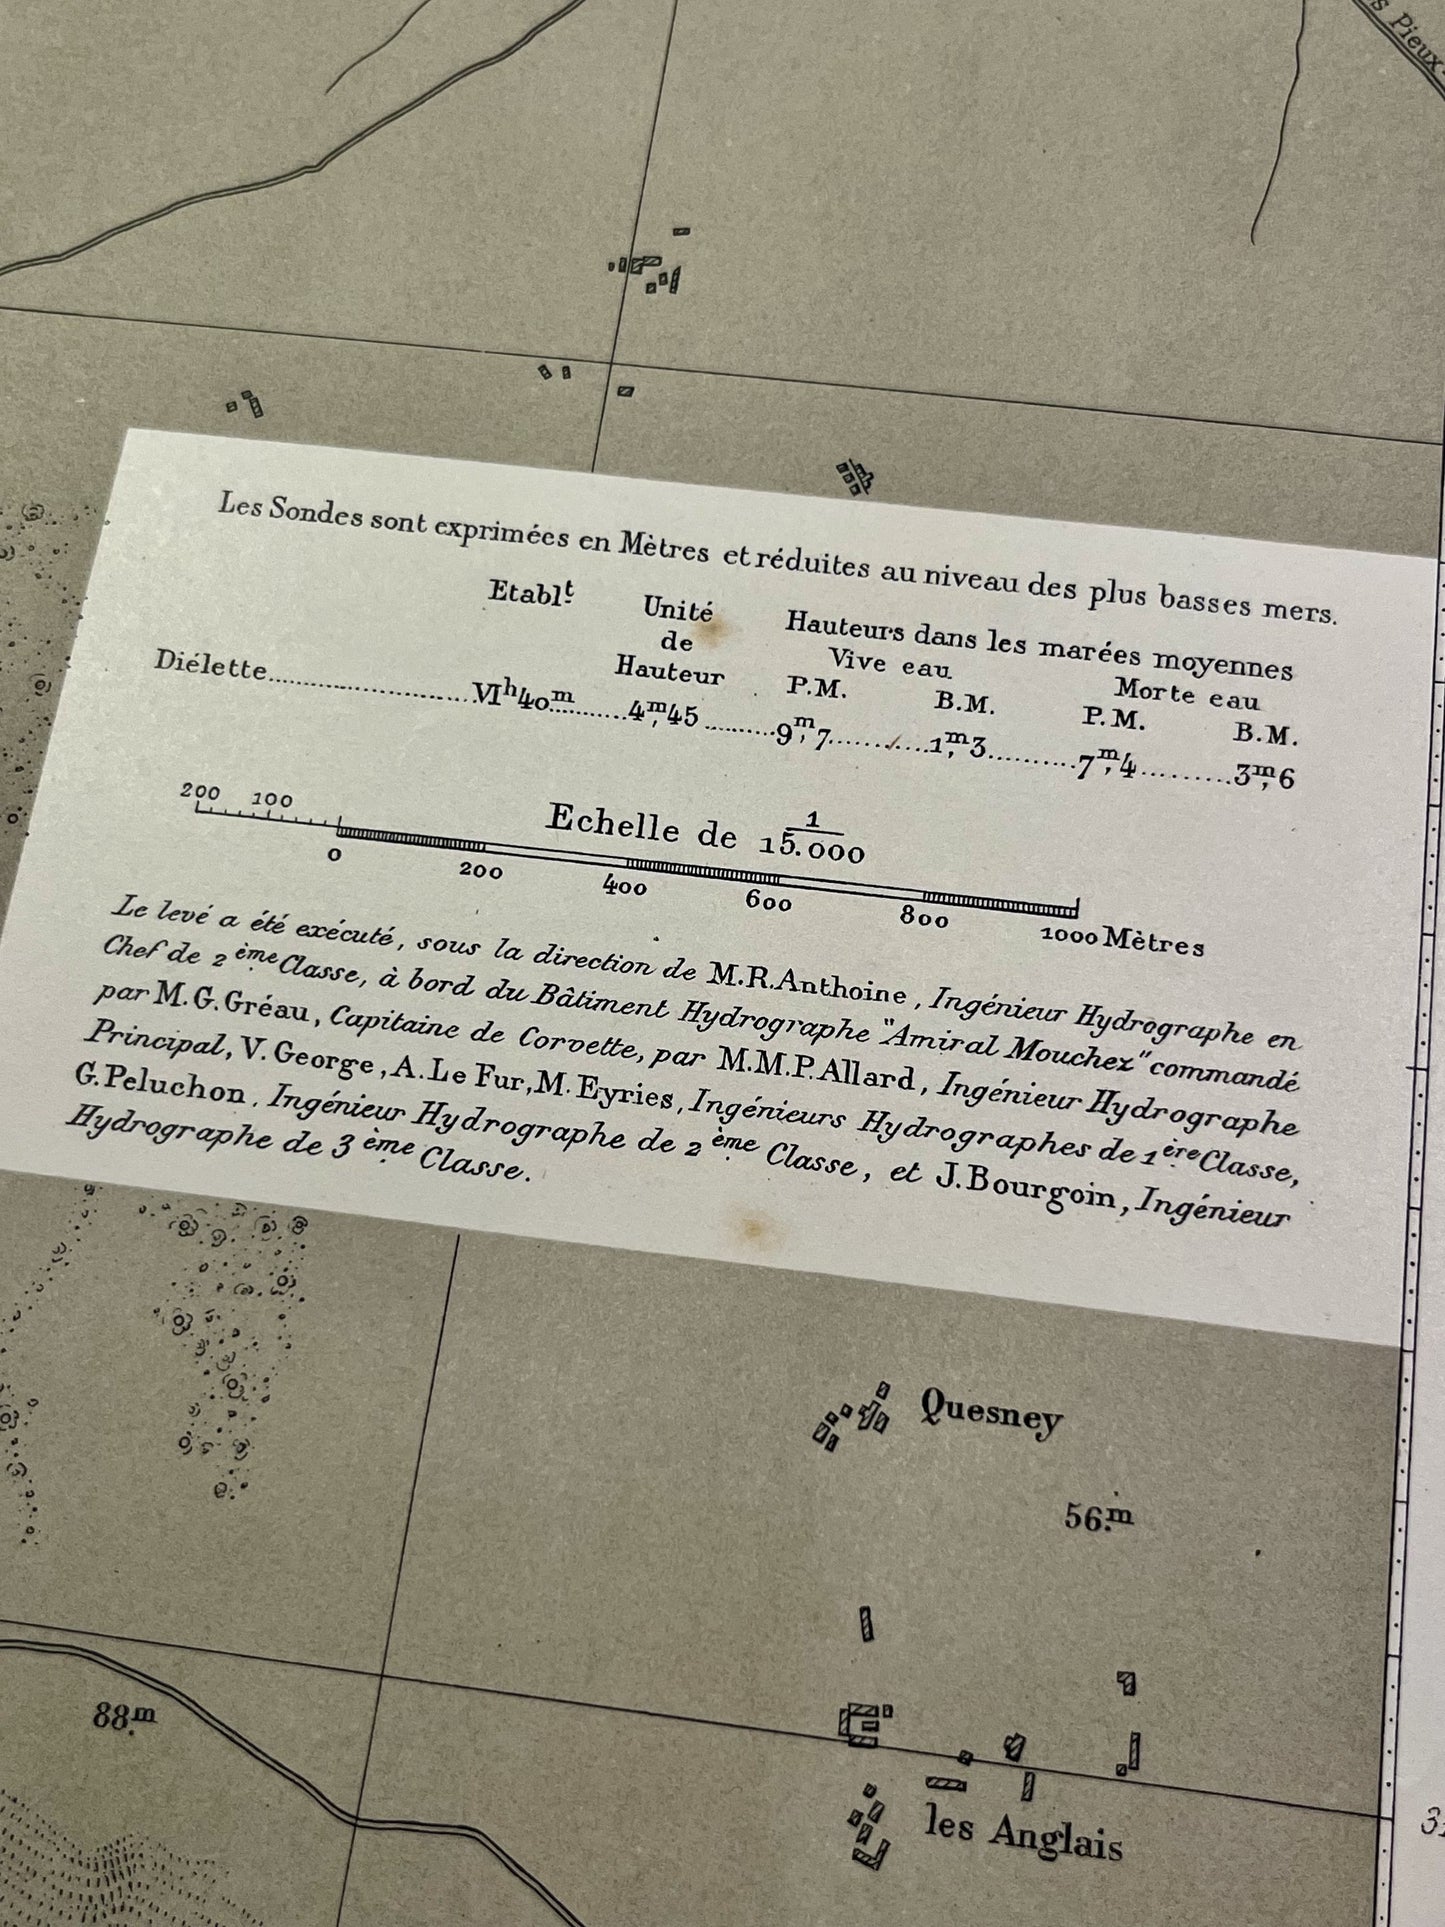 s Pieux
Les Sondes sont exprimées en Mètres et réduites au niveau des plus basses mers.
Etablt
Unité de Hauteur
Hauteurs dans les marées moyennes
Vive eau
Morte eau
P.M. B.M. P.M. B.M.
Diélette.....................VIh40m.........4m,45..........9m,7..........1m,3..........7m,4..........3m,6
Echelle de 1/15.000
200 100
0 200 400 600 800 1000 Mètres
Le levé a été exécuté, sous la direction de M.R.Anthoine, Ingénieur Hydrographe en
Chef de 2ème Classe, à bord du Bâtiment Hydrographe "Amiral Mouchez" commandé
par M.G.Gréau, Capitaine de Corvette, par M.M.P.Allard, Ingénieur Hydrographe
Principal, V. George, A. Le Fur, M. Eyries, Ingénieurs Hydrographes de 1ère Classe,
G.Peluchon. Ingénieur Hydrographe de 2ème Classe, et J.Bourgoin, Ingénieur
Hydrographe de 3ème Classe.
Quesney
56.m
88.m
les Anglais